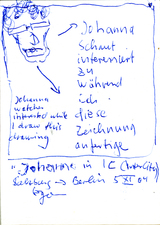 Johanna
schaut
interessiert
zu
während
ich
diese
Zeichnung
anfertige
Johanna
watches
interested while
I draw this
drawing
Johanna in IC (InterCity)
→ Berlin 5 XI 04